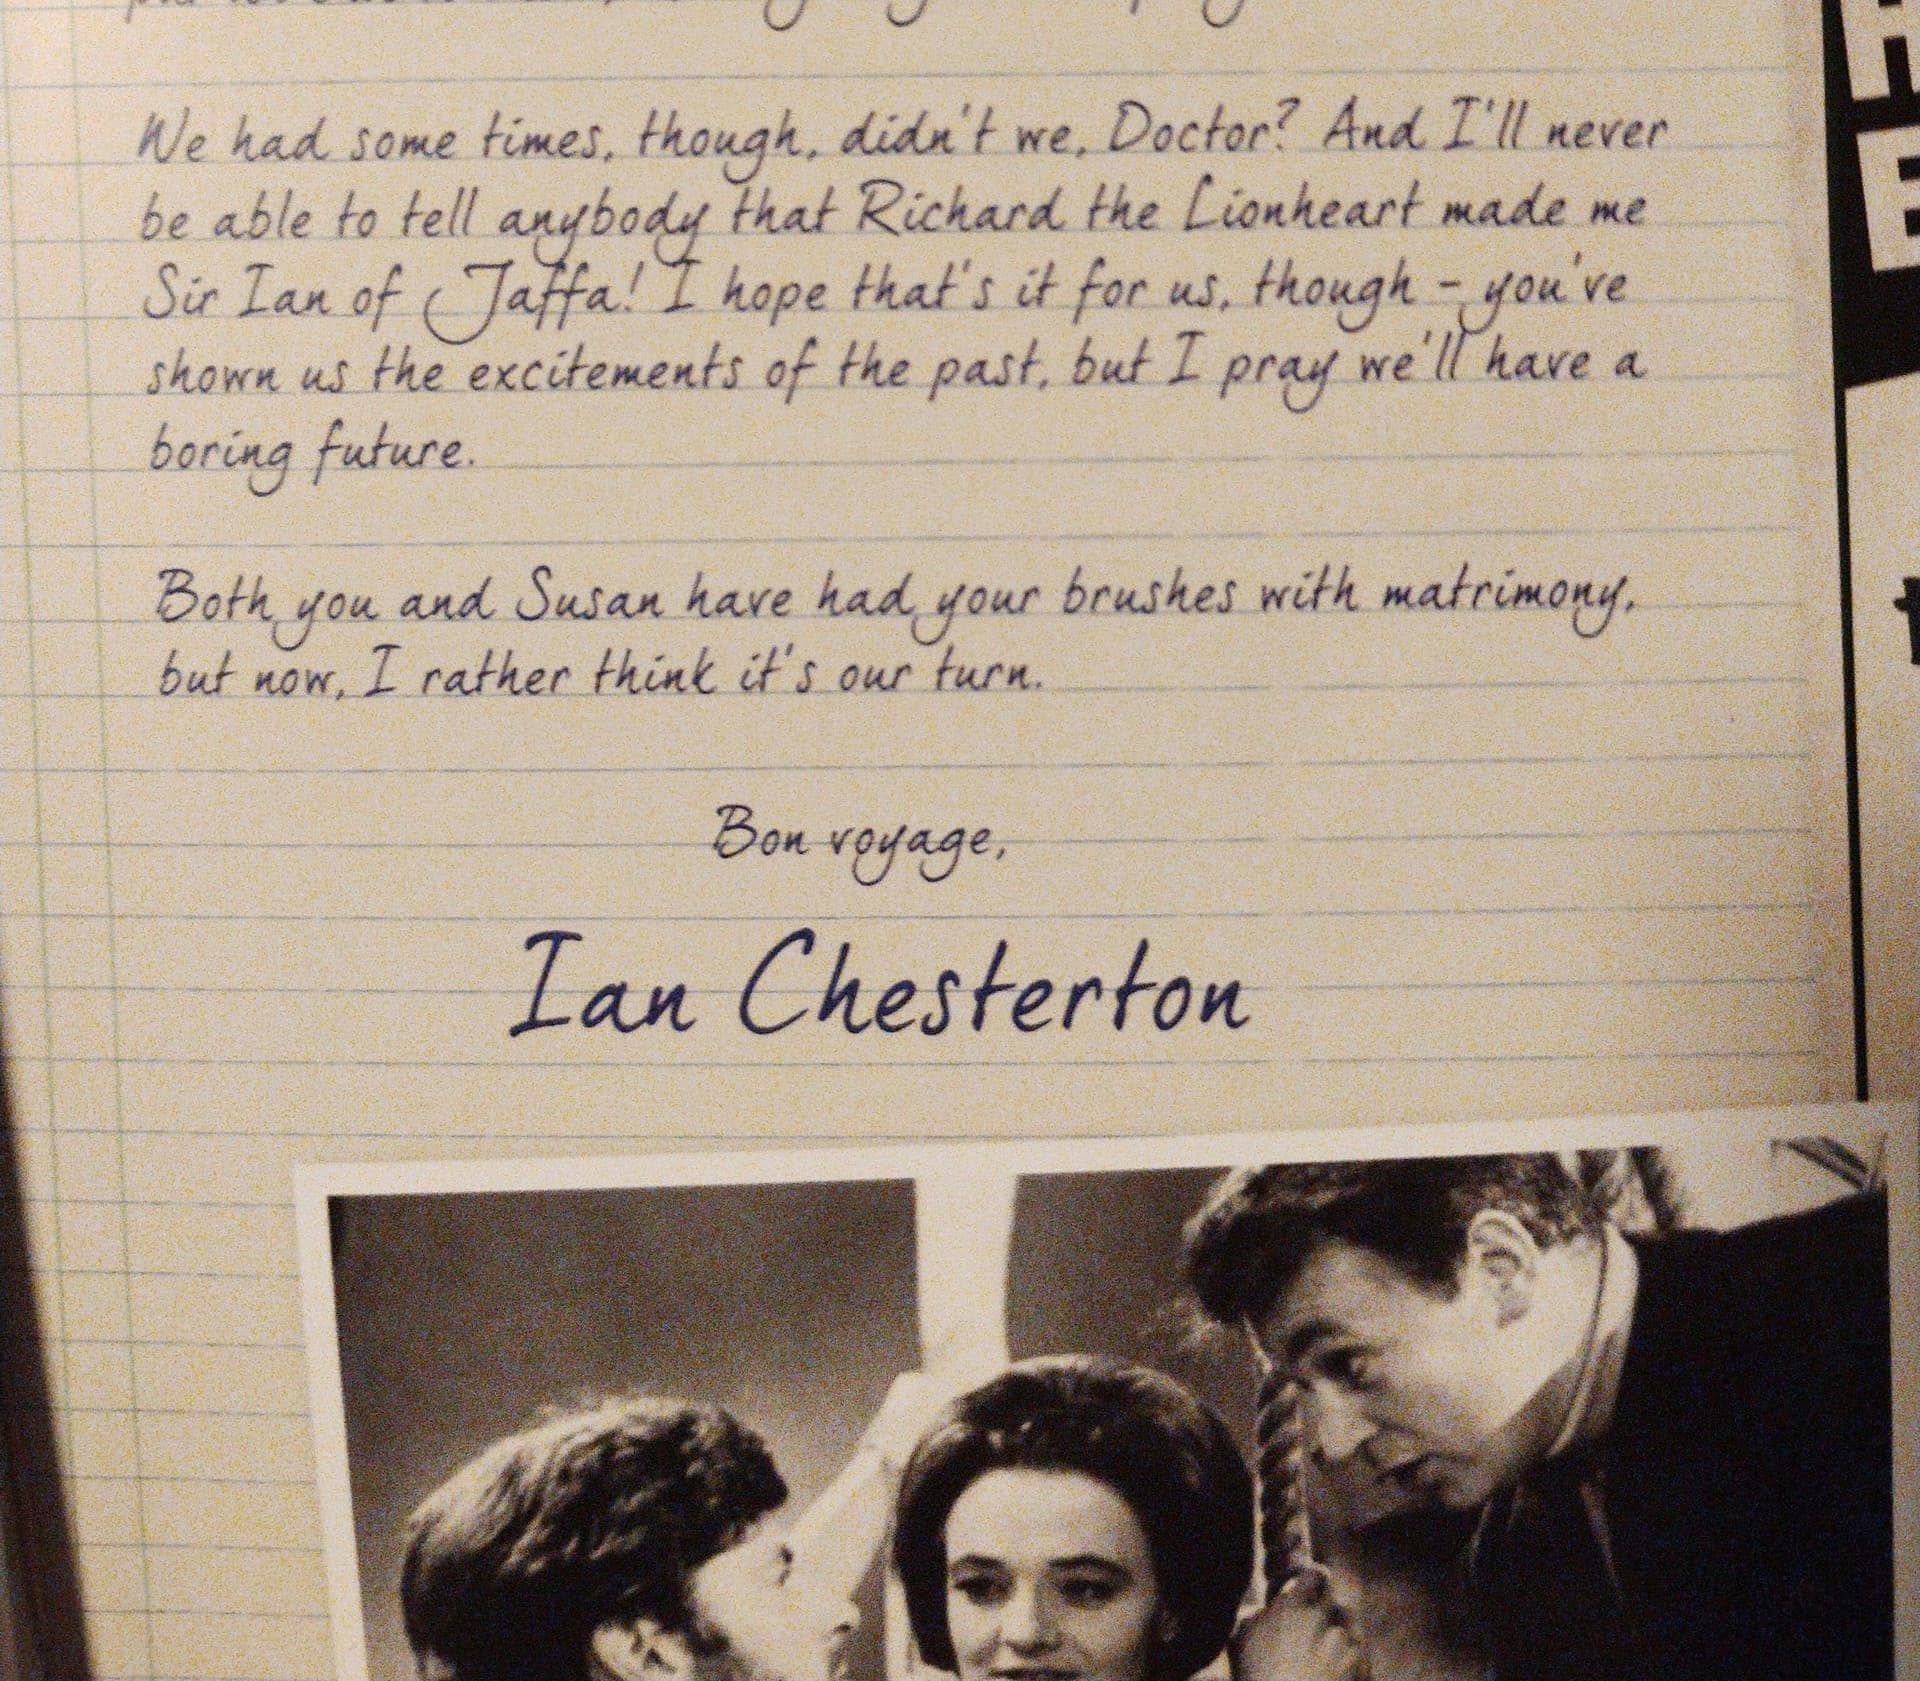 We had some times, though, didn't we, Doctor? And I'll never
be able to tell anybody that Richard the Lionheart made me
Sir Ian of Jaffa! I hope that's it for us, though – you've
shown us the excitements of the past, but I pray we'll have a
boring future.
Both you and Susan have had your brushes with matrimony,
but now, I rather think it's our turn.
Bon voyage,
Ian Chesterton